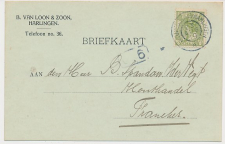 B. VAN LOON & ZOON,
HARLINGEN.
Telefoon no. 38.
BRIEFKAART
AAN den Heer
Houthandel
Franeker